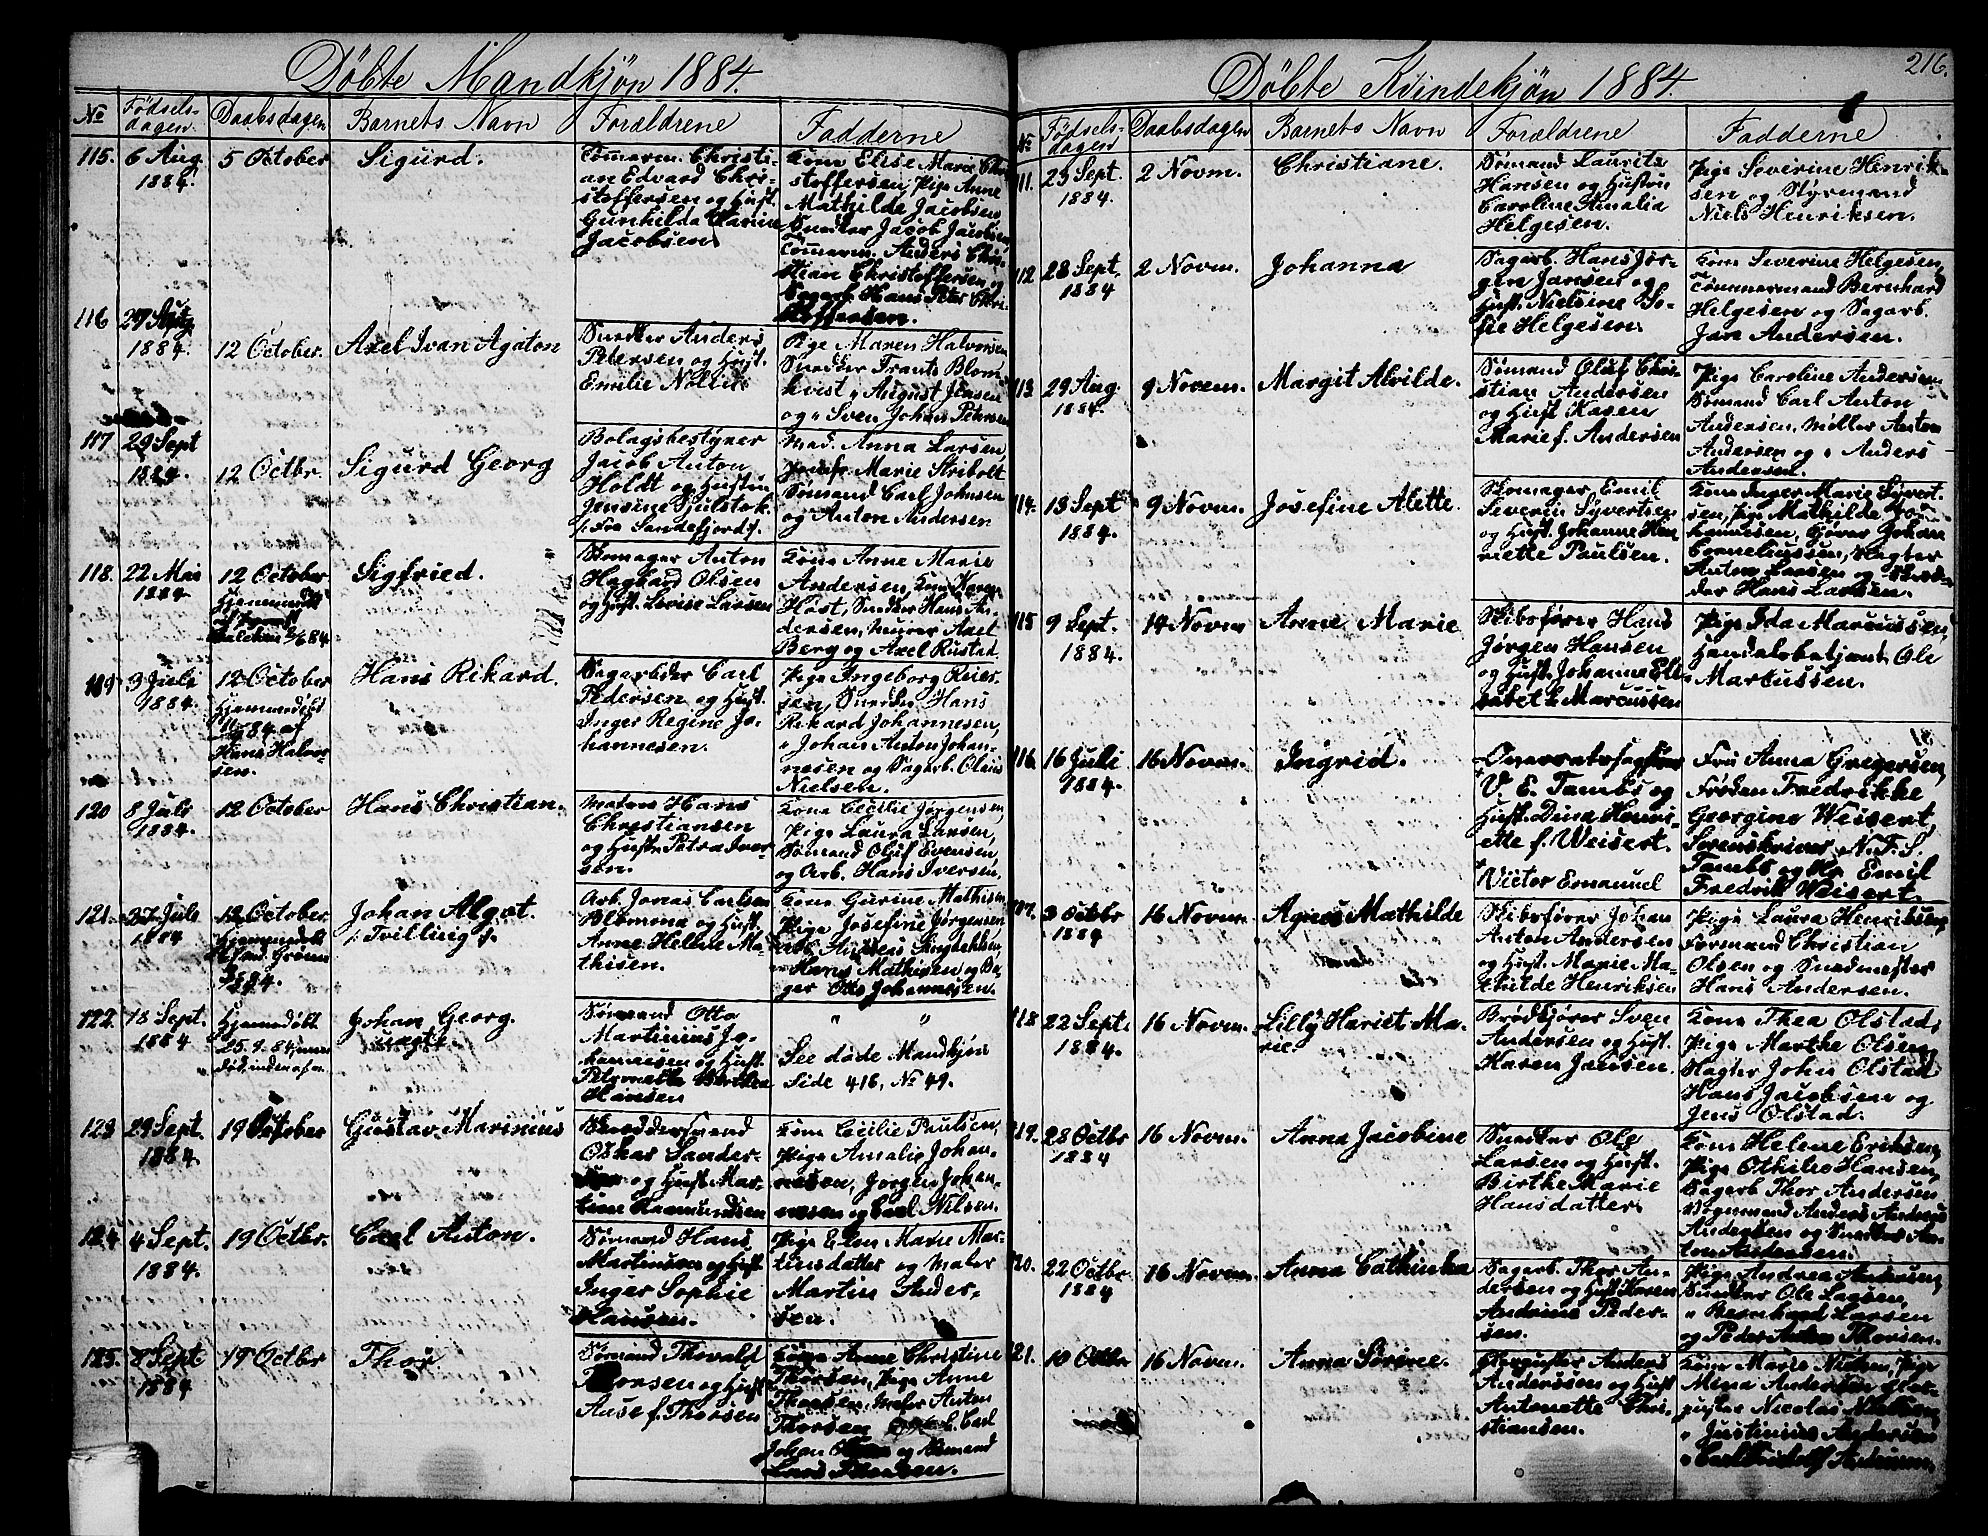 Döbte Mandkjøn 1884.
№ Fødsels-dagen. Daabsdagen Barnets Navn Forældrene Fadderne
115. 6 Aug. 1884. 5 October Sigurd.
Tømmerm. Christi-
an Edvard Chri-
stoffersen og Hust.
Gunhilda Marine
Jacobsen
Kone Elise Marie Chri-
stoffersen, Pige Anne
Mathilde Jacobsen,
Snedker Jacob Jacobsen,
Tømmerm. Anders Chri-
stian Christoffersen og
Sagarb. Hans Peter Chri-
stoffersen.
116 1884. 12 October. Axel Ivan Agaton
Snedker Anders
Petersen og Hust.
Emilie Nolin
Pige Maren Halvorsen
Snedker Frants Blom
kvist, " August Jensen
og " Sven Johan Petersen
117 29 Sept 1884. 12 Octbr. Sigurd Georg
Bolagsbestyrer
Jacob Anton
Holdt og Hustru
Jensine Hjulstok
/: Fra Sandefjord :/
Mad. Anna Larsen,
Jomfr. Marie Stribolt
Sømand Carl Johnsen
og Anton Andersen
118. 22 Mai 1884. 12 October Hjemmedøbt Sigfried.
Skomager Anton
Hagbard Olsen
og Hust. Lovise Larsen
Kone Anne Marie
Andersen, Kone Karen
Høst, Snedker Hans An-
dersen, Murer Axel
Berg og Axel Rustad
119 3 Juli 1884. 12 October Hjemmedøbt af Hans Halvor-sen. Hans Rikard.
Sagarbeider Carl
Pedersen og Hust.
Inger Regine Jo-
hannesen.
Pige Ingeborg Rier-
sen, Snedker Hans
Rikard Johannesen,
" Johan Anton Johan-
nesen og Sagarb. Olaus
Nielsen.
120 8 Juli 1884. 12 October Hans Christian.
Matros Hans
Christiansen
og Hustr. Petra Iver-
sen.
Kone Cecilie Jørgensen,
Pige Laura Larsen,
Sømand Oluf Evensen,
og Arb. Hans Iversen.
121. Juli 1884 12 October Hjemmedøbt Johan Algot. /: Tvilling :/
Arb. Jonas Carlsen
Blomma og Hust.
Anne Hellene Ma-
thisen.
Kone Gurine Mathisen
Pige Josefine Jørgensen
Hans Mathisen og Ba-
ger Otto Johannesen.
122. 18 Sept. 1884 Hjemmedøbt 25.9.84, Johan Georg. uægte.
Sømand Otto
Martinius Jo-
hansen og Hust.
Peternette Berthea
Hansen
" "
See døde Mandkjøn
Side 416, № 49.
123 29 Sept. 1884. 19 October Gustav Marinius
Oskar Sander-
sen og Hust. Mar-
tine Rasmundsen
Kone Cecilie Paulsen,
Pige Amalie Johan-
nesen, Jørgen Johan-
nesen og Carl Nilsen.
124. 4 Sept. 1884. 19 Octbr. Carl Anton.
Sømand Hans
Martinsen og Hust.
Inger Sophie
Hansen.
Pige Elen Marie Mar-
tinsdatter og Maler
Martin Ander-
sen.
125. 8 Sept 1884 19 Octbr Thor.
Sømand Thorvald
Thorsen og Hust.
Anne f. Thorsen
Kone Anne Christine
Thorsen, Pige Anne
Thorsen, Maler Anton
Thorsen Carl
Johan og Sømand
Lars Thorsen.
216.
Döbte Kvindekjøn 1884.
№ Fødsels-dagen Daabsdagen Barnets Navn Forældrene Fadderne
111. 23 Sept. 1884. 2 Novm. Christiane.
Sømand Laurits
Hansen og Hustru
Caroline Amalia
Helgesen.
Pige Severine Henrik-
sen og Styrmand
Niels Henriksen.
112 28 Sept. 1884 2 Novm. Johanna
Sagarb. Hans Jør-
gen Jansen og
Hust. Nielsine So-
fie Helgesen.
Kone Severine Helgesen,
Tømmermand Bernhard
Helgesen og Sagarb.
Jan Andersen.
113. 29 Aug 1884. 9 Novem. Margit Alvilde.
Sømand Oluf Chri-
stian Andersen
og Hust. Karen
Marie f. Andersen
Pige Caroline Andersen
Sømand Carl Anton
Andersen, Møller Anton
Andersen og " Anders
Andersen.
114. 13 Sept 1884. 9 Novm. Josefine Alette.
Skomager Emil
Severin Syvertsen
og Hust. Johanne Hen
riette Paulsen.
Kone Inger Marie Syvert-
sen, Pige Mathilde Jo-
hannesen, Gjører Johan
Corneliussen, Slagter
Anton Larsen og Skræd-
der Hans Larsen.
115 9 Sept. 1884. 14 Novm Anne Marie
Skibsfører Hans
Jørgen Hansen
og Hust. Johanne Eli-
sabet f. Marcussen
Pige Ida Marcussen,
Handelsbetjent Ole
Marcussen.
116. 16 Juli 1884. 16 Novm. Ingrid.
Overretssagfører
V. E. Tambs og
Hust. Dina Henri-
ette f. Weisert.
+ Victor Emanuel
Fru Anna Gregersen,
Frøken Fredrikke
Georgine Weisert,
Sorenskriver N. F. S.
Tambs og Hr. Emil
Fredrik Weisert.
117. 3 Octbr 1884. 16 Novm. Agnes Mathilde
Skibsfører Johan
Anton Andersen
og Hust. Marie Ma-
thilde Henriksen
Pige Laura Henriksen,
Formand Christian
Olsen og Snedmester
Hans Andersen.
118 22 Sept. 1884. 16 Novm. Lilly Hariet Ma-rie.
Brødkjører Sven
Andersen og Hust.
Karen Jansen.
Kone Thea Olstad,
Pige Marthe Olsen,
Slagter John Olstad
Hans Jacobsen og
Jens Olstad.
119. 28 Octbr 1884 16 Novm. Anna Jacobine
Snedker Ole
Larsen og Hust.
Birthe Marie
Hansdatter.
Kone Helene Eriksen,
Pige Othilie Hansen,
Sagarb. Thor Andersen
Vognmand Anders
Andersen og Snedker An-
ton Andersen.
120. 22 Octbr 1884 16 Novm. Anna Cathinka
Sagarb. Thor An-
dersen og Hust. Karen
Andrine Peder-
sen.
Pige Andrea Andersen,
Snedker Ole Larsen,
" Bernhard Larsen
og Peder Thorsen.
121. 10 Octbr 16 Novm. Anna Sørine.
Anders
Anderssen og Hust
Antonette Chri-
stiansen.
Kone Marie Nielsen, Pige
Mina Andersen
Nicolai Nielsen,
" Justinius Andersen
" Carl Fridolf Andersen.